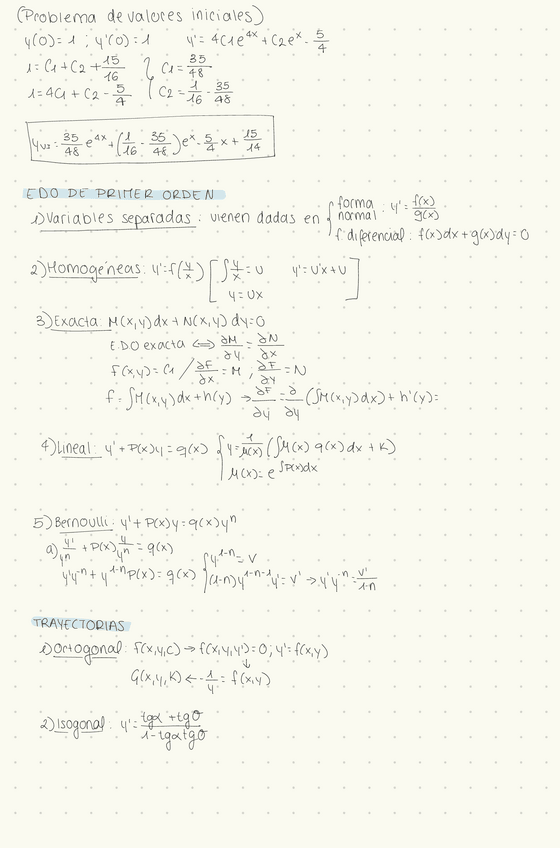 (Problema de valores iniciales)
y(0)=1 ; y'(0)=1   y'=4C1e^4x+C2e^x-5/4
1=C1+C2+15/16 } C1=35/48
1=4C1+C2-5/4 } C2=1/16-35/48
yus=35/48 e^4x+(1/16-35/48)e^x-5/4x+15/14
EDO DE PRIMER ORDEN
1)Variables separadas: vienen dadas en { forma normal: y'=f(x)/g(x)
f. diferencial: f(x)dx+g(x)dy=0
2)Homogéneas: y'=f(y/x) [ ∫y/x=U   y'=U'x+U ]
y=Ux
3)Exacta: M(x,y)dx+N(x,y)dy=0
EDO exacta ⟺ ∂M/∂y=∂N/∂x
f(x,y)=C1 / ∂F/∂x=M ; ∂F/∂y=N
f=∫M(x,y)dx+h(y) → ∂F/∂y=∂/∂y(∫M(x,y)dx)+h'(y)=
4)Lineal: y'+P(x)y=q(x) { y=1/μ(x)(∫μ(x)q(x)dx+K)
μ(x)=e^∫P(x)dx
5)Bernoulli: y'+P(x)y=q(x)y^n
a) y'/y^n+P(x)y/y^n=q(x)
y'y^-n+y^1-n P(x)=q(x) { y^1-n=V
(1-n)y^1-n-1 y'=V' → y'y^-n=V'/1-n
TRAYECTORIAS
1)Ortogonal: f(x,y,C)→f(x,y,y')=0; y'=f(x,y)
↓
G(x,y,K)←-1/y'=f(x,y)
2)Isogonal: y'=tgα+tgθ/1-tgαtgθ